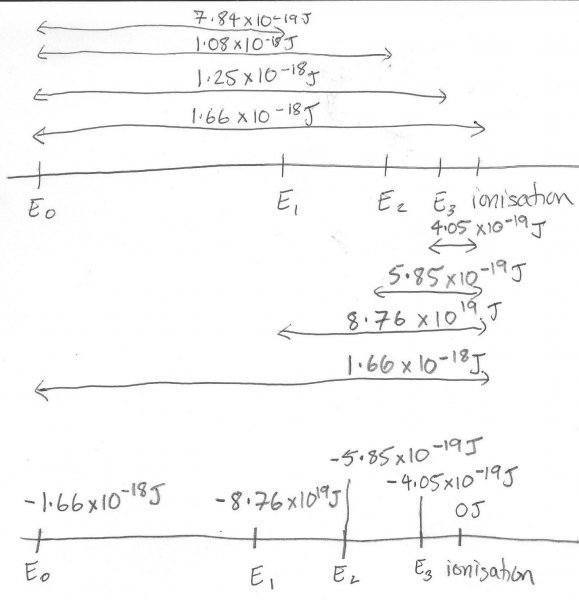 7.84x10-19J
1.08x10-18J
1.25x10-18J
1.66x10-18J
E0 E1 E2 E3 ionisation
4.05x10-19J
5.85x10-19J
8.76x10 19J
1.66x10-18J
-5.85x10-19J
-4.05x10-19J
-1.66x10-18J -8.76x1019J 0J
E0 E1 E2 E3 ionisation